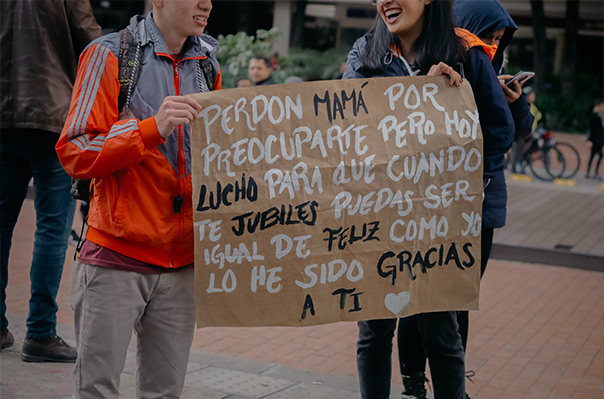 PERDON MAMÁ POR
PREOCUPARTE PERO HOY
LUCHO PARA QUE CUANDO
TE JUBILES PUEDAS SER
IGUAL DE FELIZ COMO YO
LO HE SIDO GRACIAS
A TI